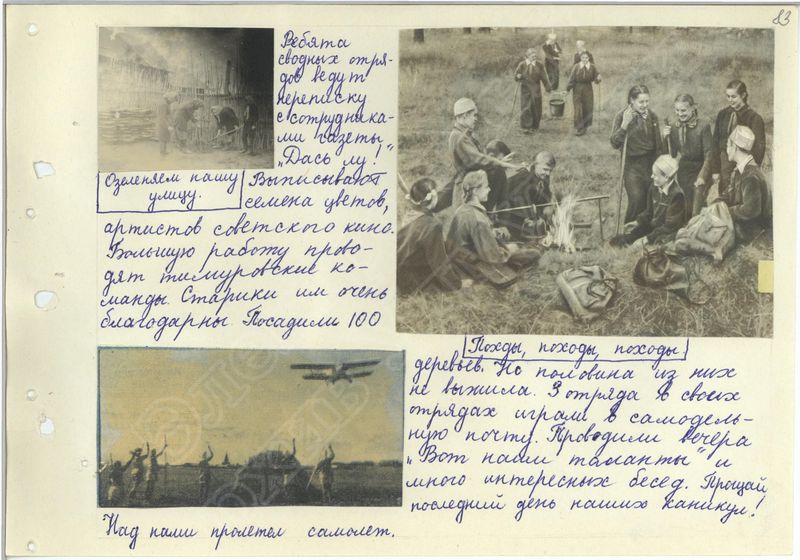 83
Ребята
сводных отря-
дов ведут
переписку
с сотрудника-
ми газеты
„Дась лу!"
Озеленяем нашу
улицу.
Выписывают
семена цветов,
артистов советского кино.
Большую работу прово-
дят тимуровские ко-
манды. Старики им очень
благодарны. Посадили 100
Походы, походы, походы.
деревьев. Но половина из них
не выжила. 3 отряда в своих
отрядах играли в самодель-
ную почту. Проводили вечера
„Вот наши таланты" и
много интересных бесед. Прощай
последний день наших каникул!
Над нами пролетел самолет.